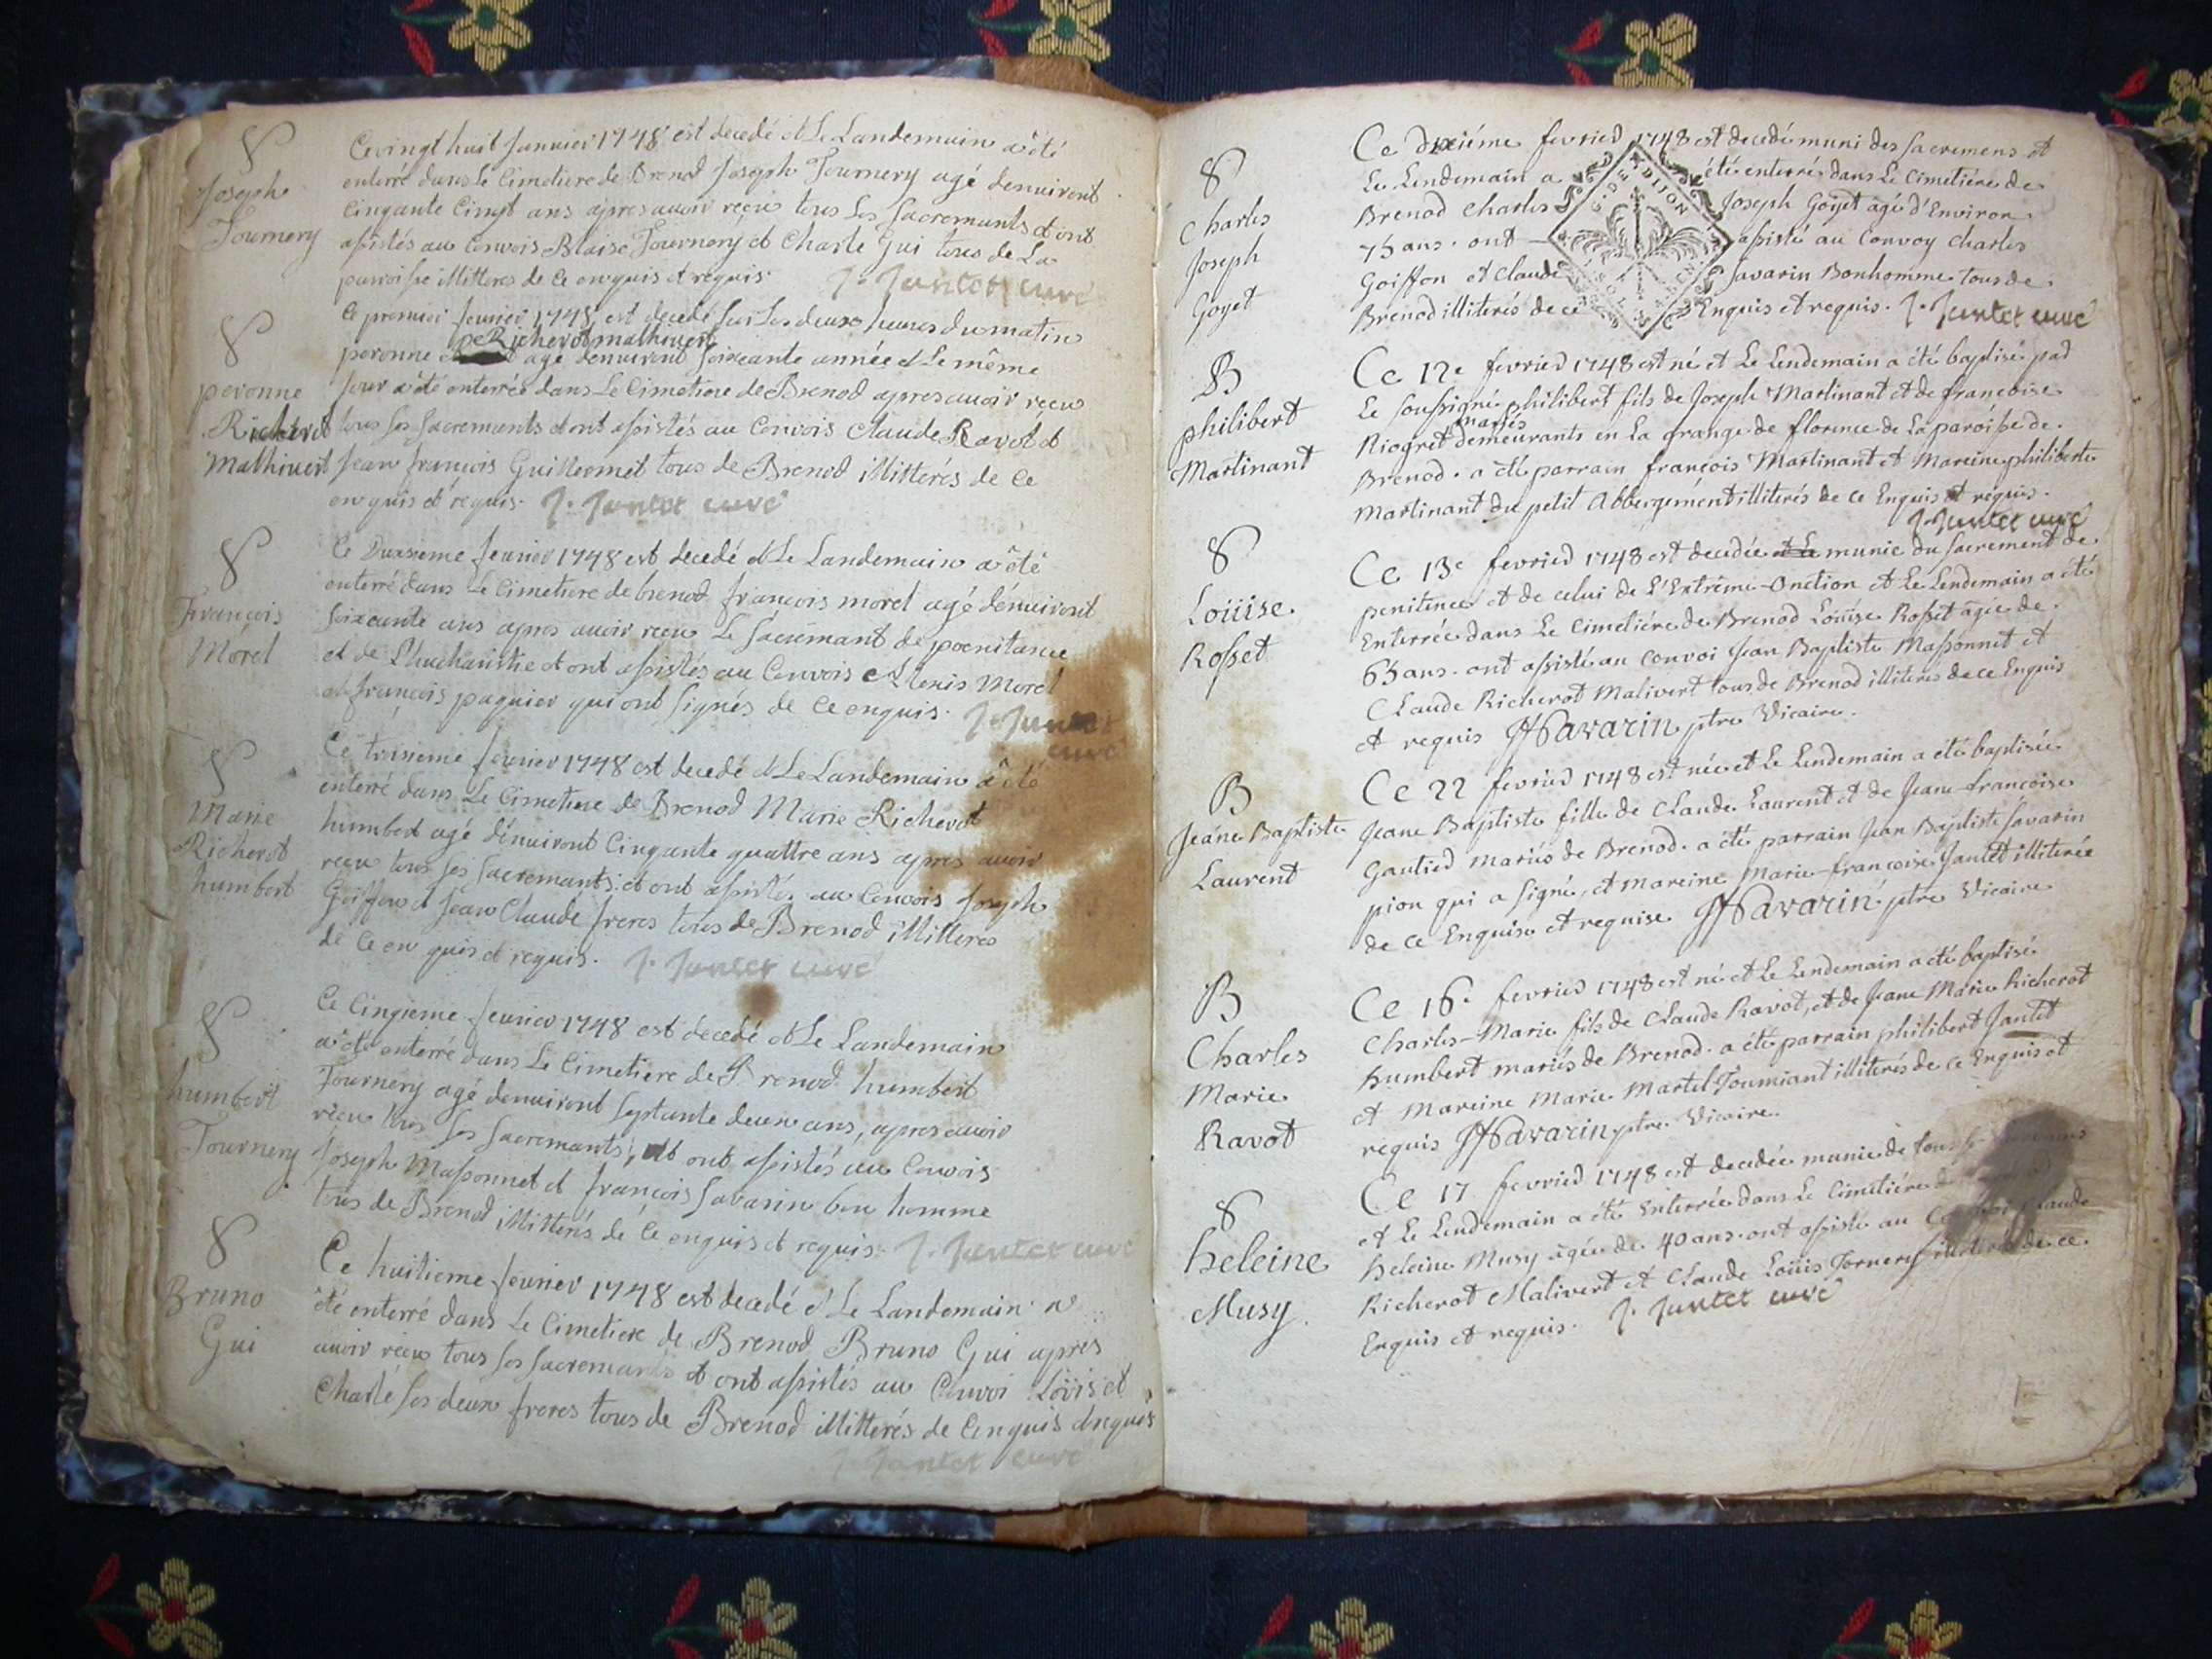 8
Joseph
Tournery
Ce vingt huit Janvier 1748 est decedé et Le Landemain a êté
enterré dans Le Cimetiere de Brenod Joseph Tournery agé denuiront
Cinqante Cinqt ans apres auoir reçeu tous Ses Sacremants et ont
assistés au Convois Blaise Tournery et Charle Gui tous de La
parroisse illitteres de Ce enquis et requis. J. Jantet curé
8
peronne
Richerot
Mathivert
Ce premier feurier 1748 est decedé sur Les deux heures du matin
peronne Richerot mathivert agé denuiront soixeante année et Le même
Jour a êté enterrée dans Le Cimetiere de Brenod apres auoir reçeu
tous Ses Sacremants et ont assistés au Convois Claude Ravot et
Jean françois Guillermet tous de Brenod illitterés de Ce
enquis et requis. J. Jantet curé
8
François
Morel
Ce Duxsieme feurier 1748 est decedé et Le Landemain a êté
enterré dans Le Cimetiere de brenod françois morel agé dénuiront
soixeante ans apres auoir reçeu Le Sacremant de poenitance
et de L'huchariistie et ont assistés au Convois Morel
et françois paquier qui ont Signés de Ce enquis. J. Jantet
curé
8
Marie
Richerot
humbert
Ce troisieme feurier 1748 est decedé et Le Landemain a êté
enterré dans Le Cimetiere de Brenod Marie Richerot
humbert agé dénuiront Cinqante quattre ans apres auoir
reçeu tous ses Sacremants et ont assistés au Convois Joseph
Goiffon et Jean Claude freres tous de Brenod illitteres
de Ce en quis et requis. J. Jantet curé
8
humbert
Tournery
Ce Cinqieme feurier 1748 est decedé et Le Landemain
a êté enterré dans Le Cimetiere de Brenod humbert
Tournery agé denuiront Septante deux ans, apres auoir
reçeu tous ses Sacremants, et ont assistés au Couvois
Joseph Massonnet et françois Savarin bon homme
tous de Brenod illitterés de Ce enquis et requis. J. Jantet curé
8
Bruno
Gui
Ce huitieme feurier 1748 est decedé et Le Landemain a
êté enterré dans Le Cimetiere de Brenod Bruno Gui apres
auoir reçeu tous ses Sacremants et ont assistés au Convoi Loüis et
Charle ses deux freres tous de Brenod illitterés de Cenquis et requis
J. Jantet curé
8
Charles
Joseph
Goyet
Ce Dixiéme fevried 1748 est decedé muni des Sacremens et
Le Lendemain a été enterré dans Le Cimetiére de
Brenod Charles Joseph Goyet agé d'Environ
75 ans. ont assisté au Convoy Charles
Goiffon et Claude Savarin Bonhomme tous de
Brenod illiterés de ce Enquis et requis. J. Jantet curé
G. DE DIJON
B
philibert
Martinant
Ce 12e fevried 1748 est né et Le Lendemain a été baptisé pad
Le Soussigné philibert fils de Joseph Martinant et de françoise
Riogret mariés demeurants en La grange de florence de La paroisse de
Brenod. a été parrain françois Martinant et Mareine philiberte
Martinant du petit Abbergement illiterés de ce Enquis et requis.
J. Jantet curé
8
Loüise
Rosset
Ce 13e fevried 1748 est decedée munie du Sacrement de
penitence et de celui de L'Extréme-Onction et Le Lendemain a été
Enterrée dans Le Cimetiére de Brenod Loüise Rosset agée de
65 ans. ont assisté au Convoi Jean Baptiste Massonnet et
Claude Richerot Malivert tous de Brenod illiteres de ce Enquis
et requis Savarin ptre Vicaire.
B
Jeane Baptiste
Laurent
Ce 22 fevried 1748 est née et Le Lendemain a été baptisée
Jeane Baptiste fille de Claude Laurent et de Jeane-francoise
Gautied mariés de Brenod. a été parrain Jean Baptiste Savarin
pion qui a signé, et mareine Marie-francoise Jantet illiterée
de ce Enquise et requise Savarin ptre Vicaire
B
Charles
Marie
Ravot
Ce 16e fevried 1748 est né et Le Lendemain a été baptisé
Charles-Marie fils de Claude Ravot, et de Jeane Marie Richerot
humbert mariés de Brenod. a été parrain philibert Jantet
et Mareine Marie Martel Toumiant illiterés de ce Enquis et
requis Savarin ptre Vicaire.
8
heleine
Musy.
Ce 17 fevried 1748 est decedée munie de tous
et Le Lendemain a été Enterrée dans Le Cimetiére de
heleine Musy agée de 40 ans. ont assisté au Claude
Richerot Malivert et Claude Loüis Tornery illiterés de ce
Enquis et requis. J. Jantet curé